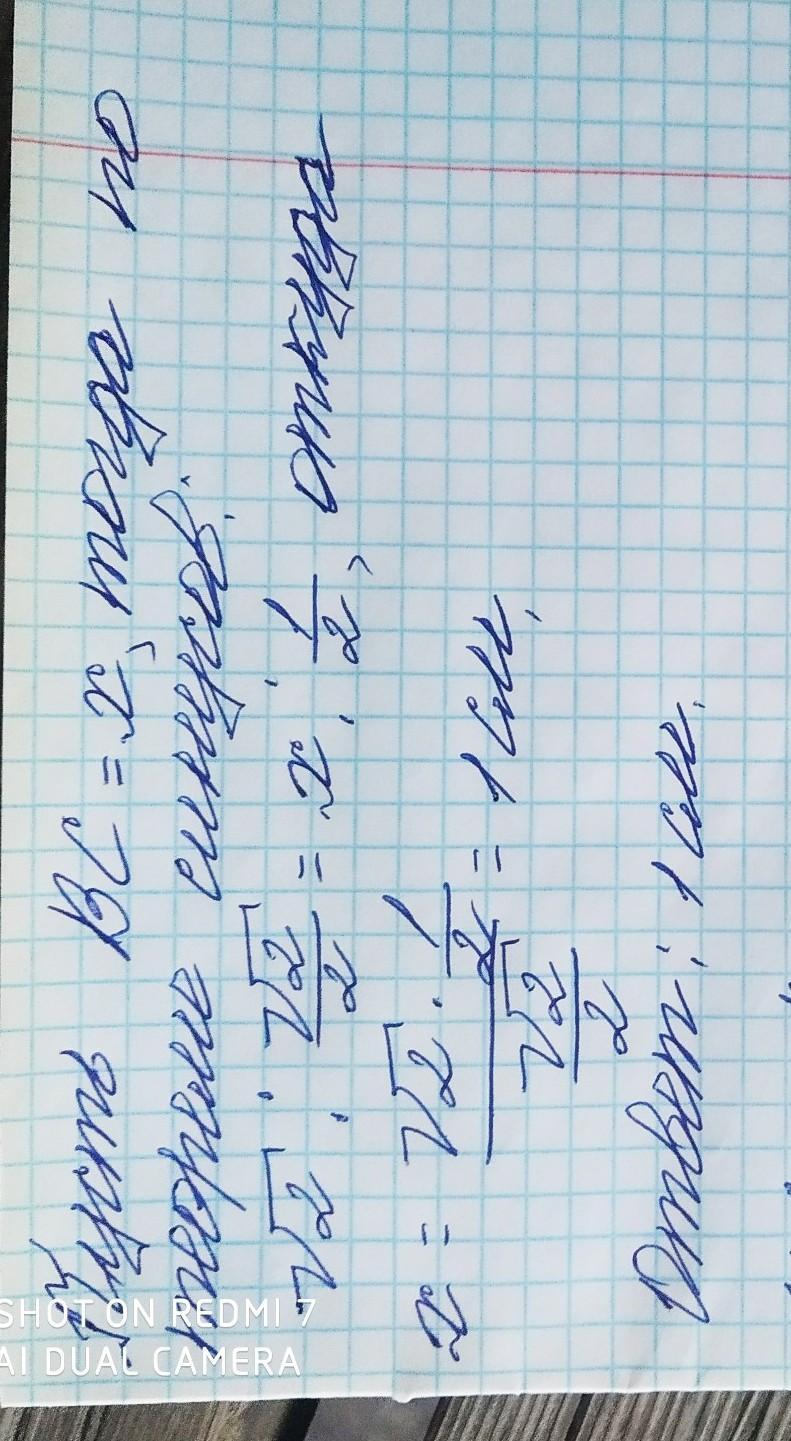 Пусть BC = x, тогда по
теореме синусов:
√2 : √2/2 = x : 1/2, откуда
x = (√2 · 1/2)/(√2/2) = 1 см.
Ответ: 1 см.
SHOT ON REDMI 7
AI DUAL CAMERA